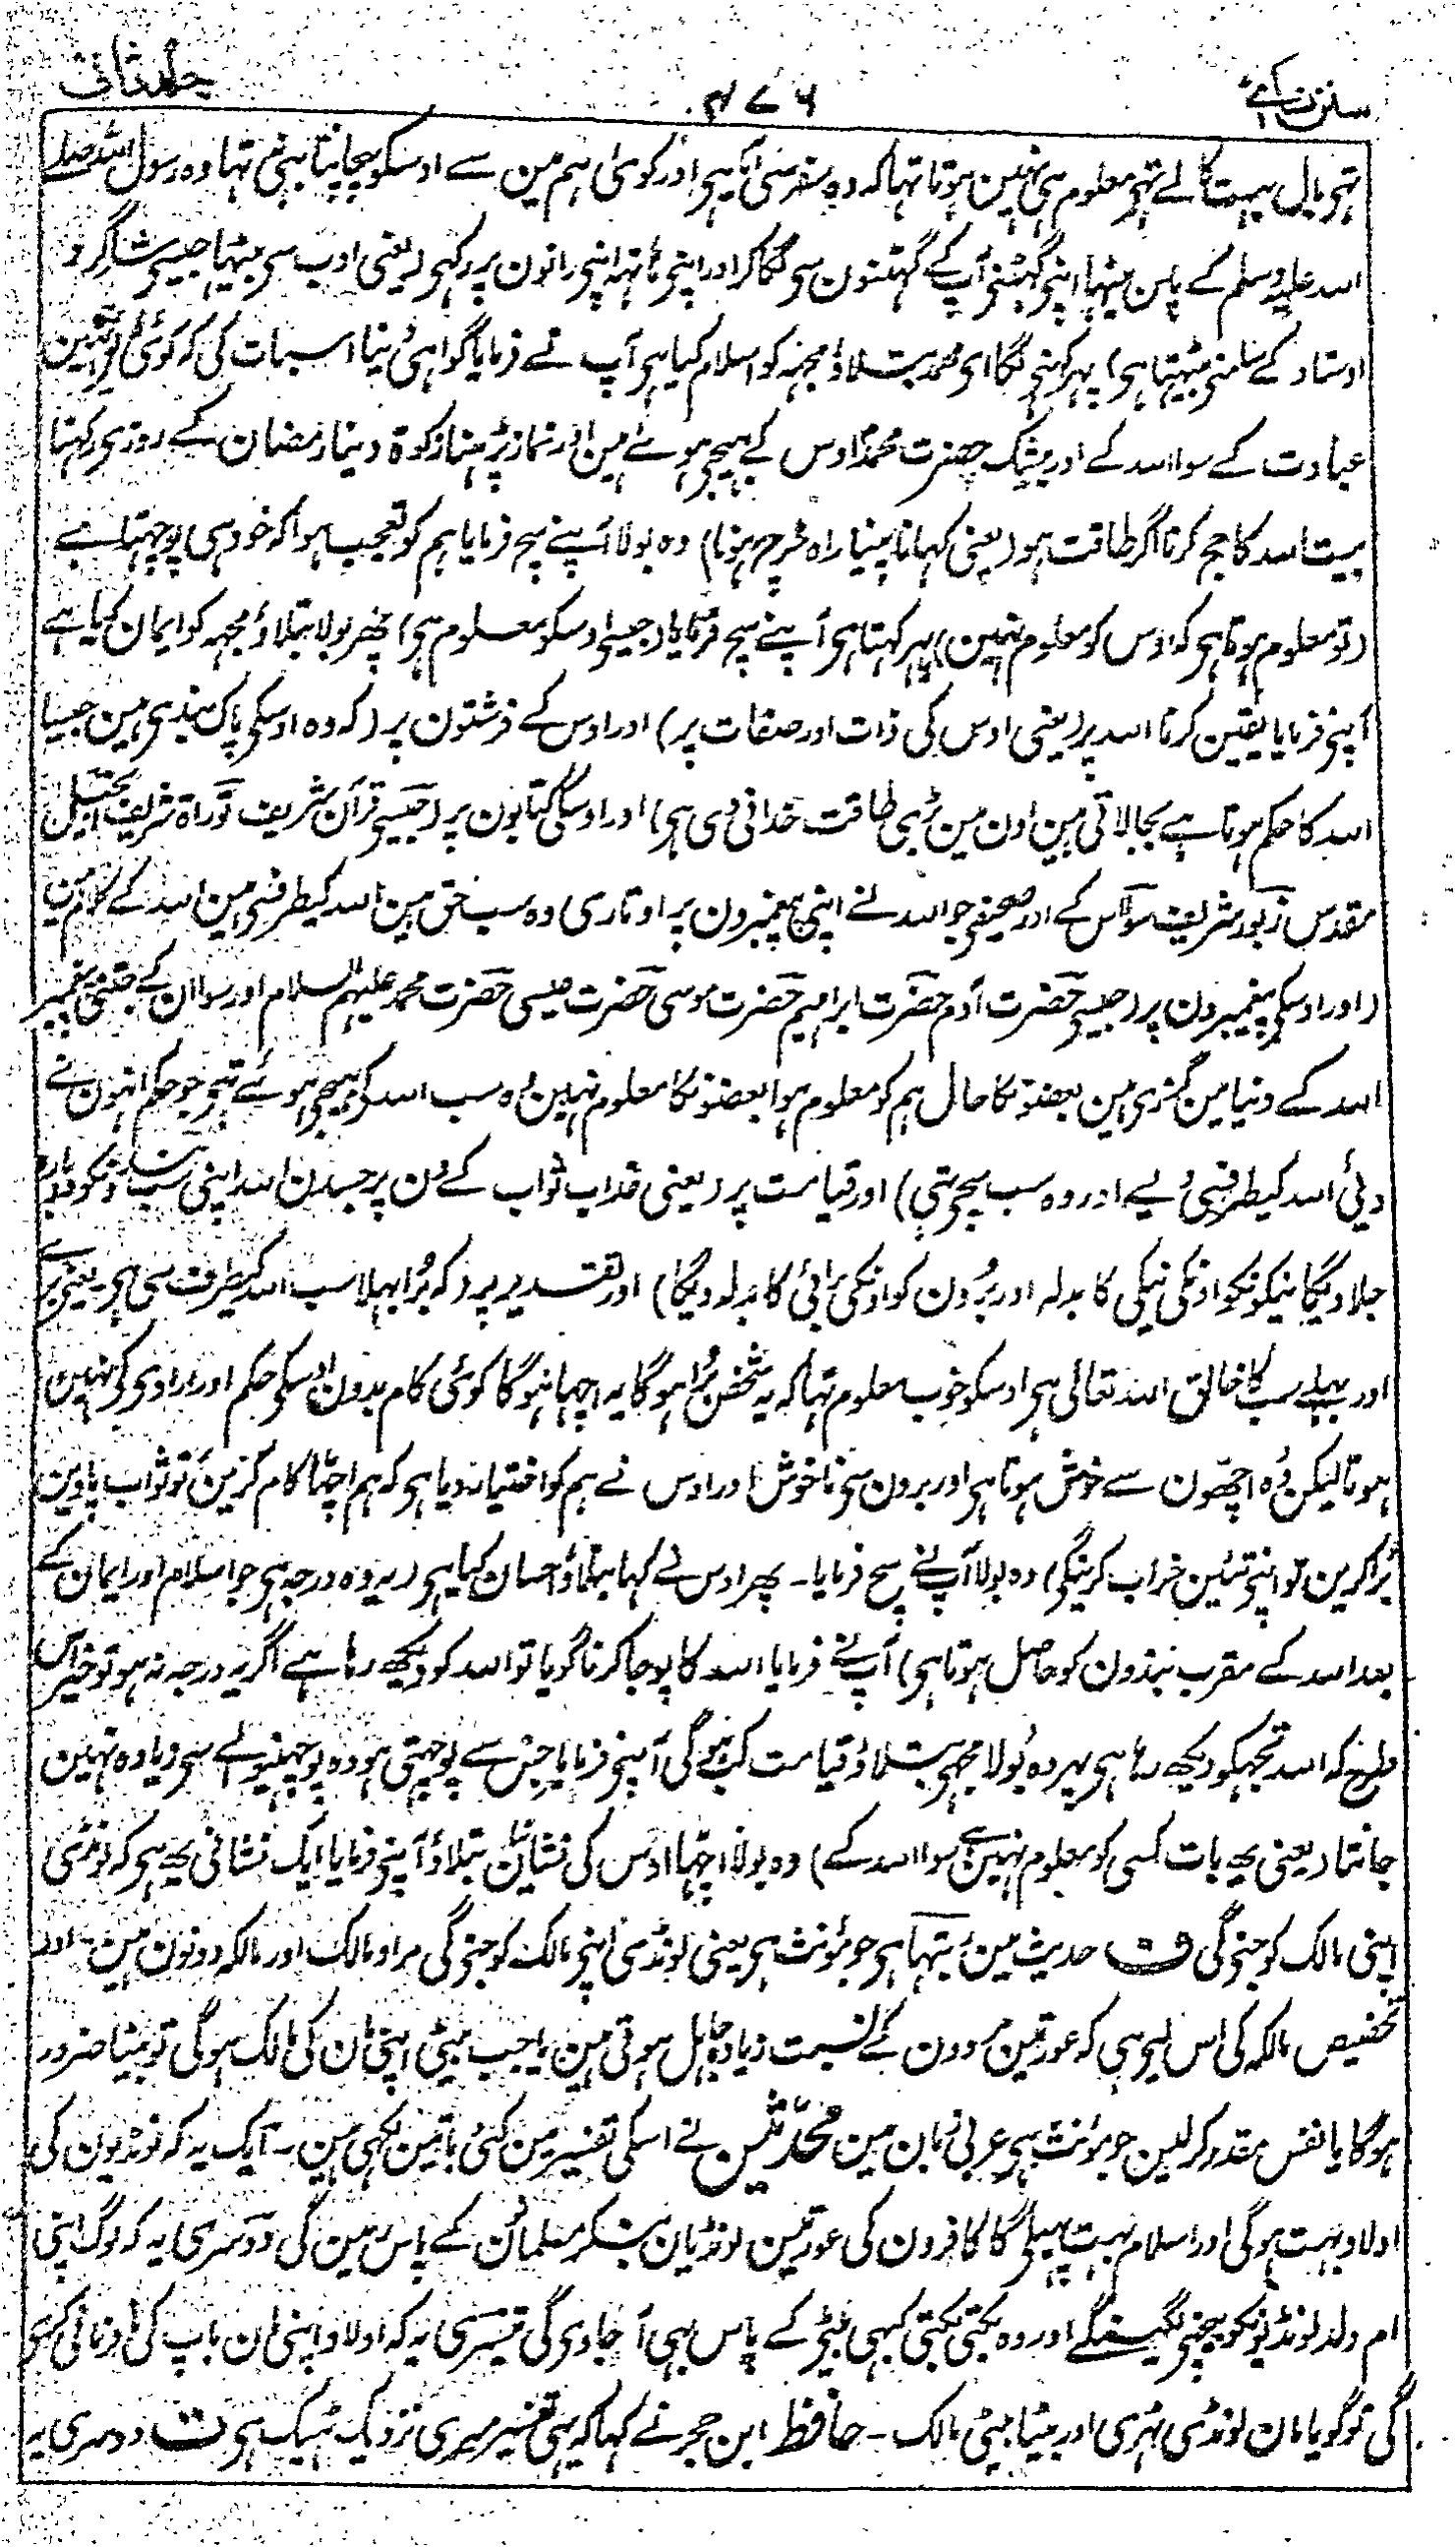 سنن نسائی ۴۷۶ جلد ثانی
تہی بال بہت کالے تہی معلوم ہی نہین ہوتا تہا کہ وہ سفر سی آیا ہی اور کوئی ہم مین سے اوسکو پہچانتا بہی نہ تہا وہ رسول اللہ صلے
اللہ علیہ وسلم کے پاس بیٹہا اپنی گہٹنی آپ کے گہٹنون سی لگا کر اور اپنی ہاتہہ اپنی رانون پر رکہی (یعنی ادب سی بیٹہا جیسی شاگرد
اوستاد کے سامنی بیٹہتا ہی) پہر کہنی لگا ای محمد بتلاؤ مجہہ کو اسلام کیا ہی آپ نے فرمایا گواہی دینا اسبات کی کہ کوئی لائق نہین
عبادت کے سوا اللہ کے اور بیشک حضرت محمدؐ اوس کے بہیجی ہوئے ہین اور نماز پڑہنا زکوۃ دینا رمضان کے روزی رکہنا
بیت اللہ کا حج کرنا اگر طاقت ہو (یعنی کہانا پینا راہ خرچ ہونا) وہ بولا آپنے سچ فرمایا ہم کو تعجب ہوا کہ خود ہی پوچہتا ہے
(تو معلوم ہوتا ہی کہ اوس کو معلوم نہین) پہر کہتا ہی آپنے سچ فرمایا (جیسی اوسکو معلوم ہی) پھر بولا بتلاؤ مجہہ کو ایمان کیا ہے
آپنی فرمایا یقین کرنا اللہ پر (یعنی اوس کی ذات اور صفات پر) اور اوس کے فرشتون پر (کہ وہ اوسکی پاک بندی ہین جیسا
اللہ کا حکم ہوتا ہے بجا لاتی ہین اون مین بڑی طاقت خدا نی دی ہی) اور اوسکی کتابون پر (جیسی قرآن شریف توراۃ شریف انجیل
مقدس زبور شریف سوا اس کے اور صحیفی جو اللہ نے اپنی پیغمبرون پر اوتاری وہ سب حق ہین اللہ کیطرف سی ہین اللہ کے کلام ہین
(اور اوسکی پیغمبرون پر (جیسی حضرت آدم حضرت ابراہیم حضرت موسی حضرت عیسی حضرت محمد علیہم السلام اور سوا ان کے جتنی پیغمبر
اللہ کے دنیا مین گزری ہین بعضونکا حال ہم کو معلوم ہوا بعضونکا معلوم نہین وہ سب اللہ کے بہیجی ہوئے تہی جو حکم انہون نے
دیئ اللہ کیطرف سی دیے اور وہ سب سچی تہی) اور قیامت پر (یعنی عذاب ثواب کے دن پر جسدن اللہ اپنی سب بندونکو دوبارہ
جلاویگا نیکونکو اونکی نیکی کا بدلہ اور بُرون کو اونکی بُرائی کا بدلہ دیگا) اور تقدیر پر (کہ بُرا بہلا سب اللہ کیطرف سی ہی یعنی بُرے
اور بہلے سب کا خالق اللہ تعالی ہی اوسکو خوب معلوم تہا کہ یہ شخص بُرا ہوگا یہ اچہا ہوگا کوئی کام بدون اوسکی حکم اور ارادی کے نہین
ہوتا لیکن وہ اچھون سے خوش ہوتا ہی اور برون سی ناخوش اور اوس نے ہم کو اختیار دیا ہی کہ ہم اچہا کام کرین تو ثواب پاوین
بُرا کرین تو اپنی تئین خراب کرینگی) وہ بولا آپنے سچ فرمایا۔ پھر اوس نے کہا بتلاؤ احسان کیا ہی (یہ وہ درجہ ہی جو اسلام اور ایمان کے
بعد اللہ کے مقرب بندون کو حاصل ہوتا ہی) آپنے فرمایا اللہ کا پوجا کرنا گویا تو اللہ کو دیکھ رہا ہے اگر یہ درجہ نہ ہو تو خیر اس
طرح کہ اللہ تجہکو دیکھ رہا ہی پہر وہ بولا مجہی بتلاؤ قیامت کب ہوگی آپنی فرمایا جس سے پوچہتی ہو وہ پوچہنیوالے سی زیادہ نہین
جانتا (یعنی یہ بات کسی کو معلوم نہین ہے سوا اللہ کے) وہ بولا اچہا اوس کی نشانیان بتلاؤ آپنی فرمایا ایک نشانی یہ ہی کہ لونڈی
اپنی مالک کو جنی گی ف حدیث مین ربتہا ہی جو مؤنث ہی یعنی لونڈی اپنی مالک کو جنی گی مراد مالک اور مالکہ دونون ہین۔ اور
تخصیص مالکہ کی اس لیی ہی کہ عورتین مردون کے نسبت زیادہ جاہل ہوتی ہین یا جب بیٹی اپنی مان کی مالک ہوگی تو بیٹا ضرور
ہوگا یا نفس مقدر کر لین جو مؤنث ہی عربی زبان مین محدثین نے اسکی تفسیر مین کئی باتین لکہی ہین۔ ایک یہ کہ لونڈیون کی
اولاد بہت ہوگی اور اسلام بہت پہیلی گا کافرون کی عورتین لونڈیان بنکر مسلمانون کے پاس رہین گی دوسری یہ کہ لوگ اپنی
ام ولد لونڈیونکو بیچنی لگینگے اور وہ بکتی بکتی کبہی بیٹی کے پاس بہی آ جاوی گی تیسری یہ کہ اولاد اپنی مان باپ کی نافرمانی کری
گی تو گویا مان لونڈی ٹہری اور بیٹا بیٹی مالک۔ حافظ ابن حجر نے کہا کہ یہی تفسیر میری نزدیک ٹہیک ہی ت دوسری یہ